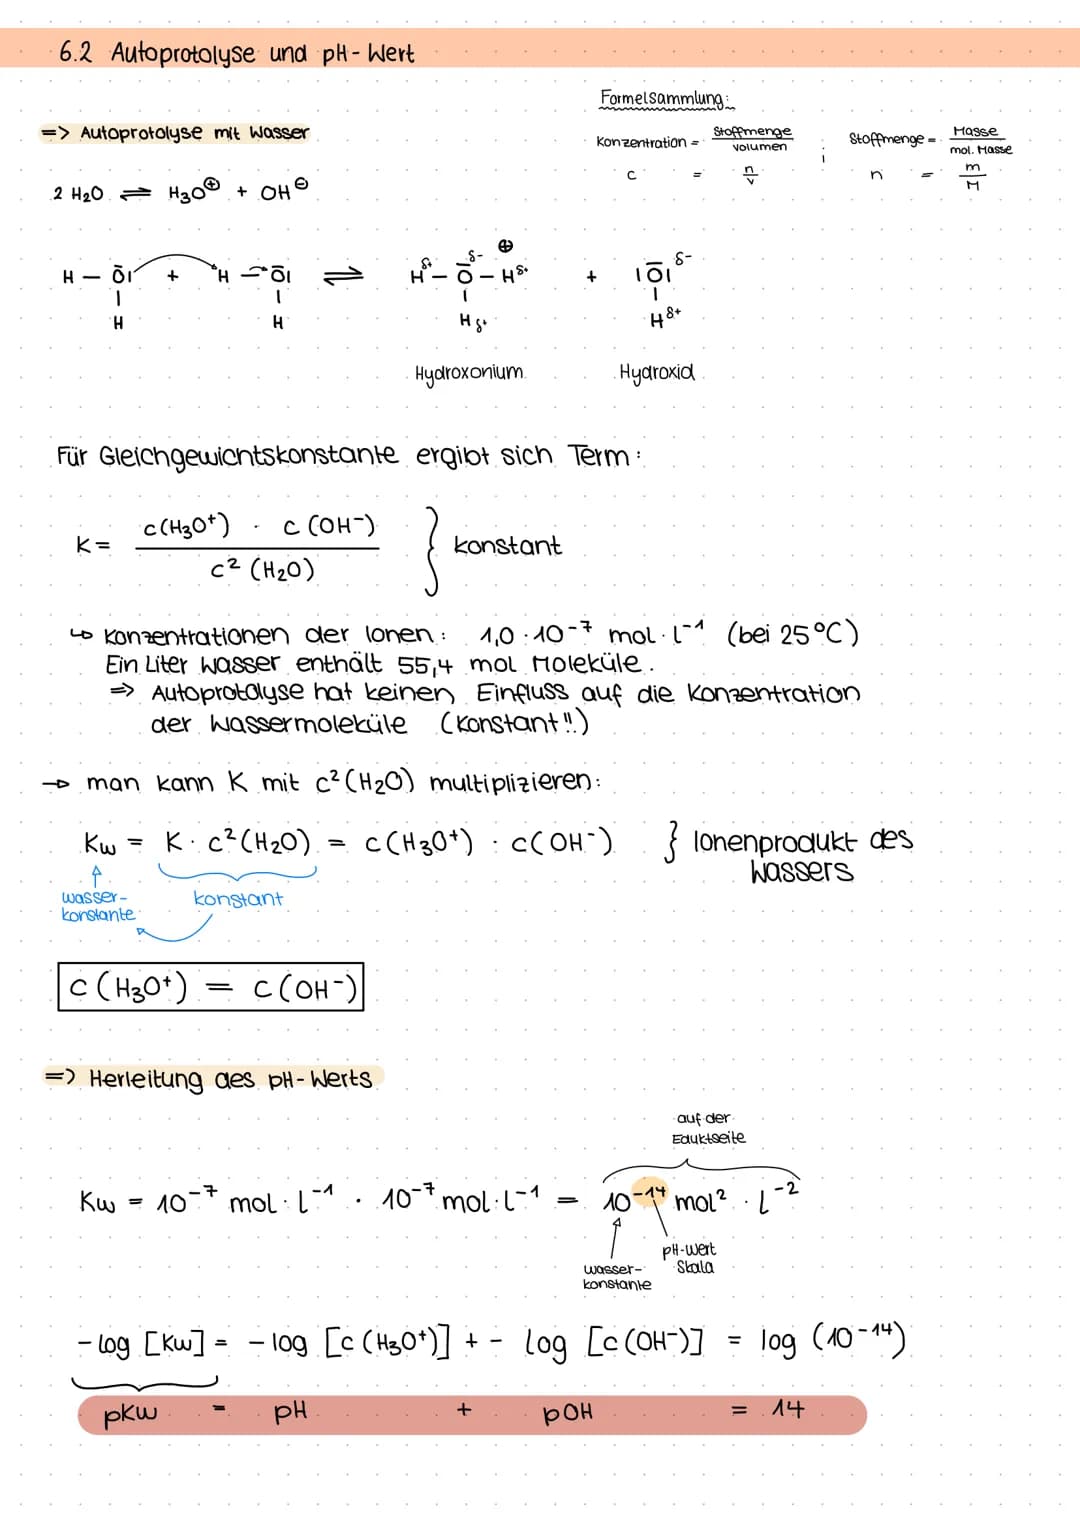 6.2 Autoprotolyse und pH-Wert
Formelsammlung:
=> Autoprotolyse mit Wasser
Konzentration = Stoffmenge / Volumen ; Stoffmenge = Masse / mol. Masse
c = n / V
n = m / M
2 H₂O ⇌ H₃O⊕ + OH⊖
H – O̅| + H – O̅| ⇌ Hδ+ – O̅δ- – Hδ+ ⊕ + |O̅|δ-
| | | |
H H Hδ+ Hδ+
Hydroxonium Hydroxid
Für Gleichgewichtskonstante ergibt sich Term:
K = c(H₃O⁺) · c(OH⁻) / c²(H₂O) } konstant
↳ Konzentrationen der Ionen: 1,0 · 10⁻⁷ mol · l⁻¹ (bei 25°C)
Ein Liter Wasser enthält 55,4 mol Moleküle.
=> Autoprotolyse hat keinen Einfluss auf die Konzentration
der Wassermoleküle (Konstant!!)
→ man kann K mit c²(H₂O) multiplizieren:
Kw = K · c²(H₂O) = c(H₃O⁺) · c(OH⁻) } Ionenprodukt des
Wassers
wasser-
konstante
konstant
c(H₃O⁺) = c(OH⁻)
=> Herleitung des pH-Werts
auf der
Eduktseite
Kw = 10⁻⁷ mol · l⁻¹ · 10⁻⁷ mol · l⁻¹ = 10⁻¹⁴ mol² · l⁻²
wasser-
konstante
pH-Wert
Skala
- log [Kw] = - log [c(H₃O⁺)] + - log [c(OH⁻)] = log (10⁻¹⁴)
pKw = pH + pOH = 14